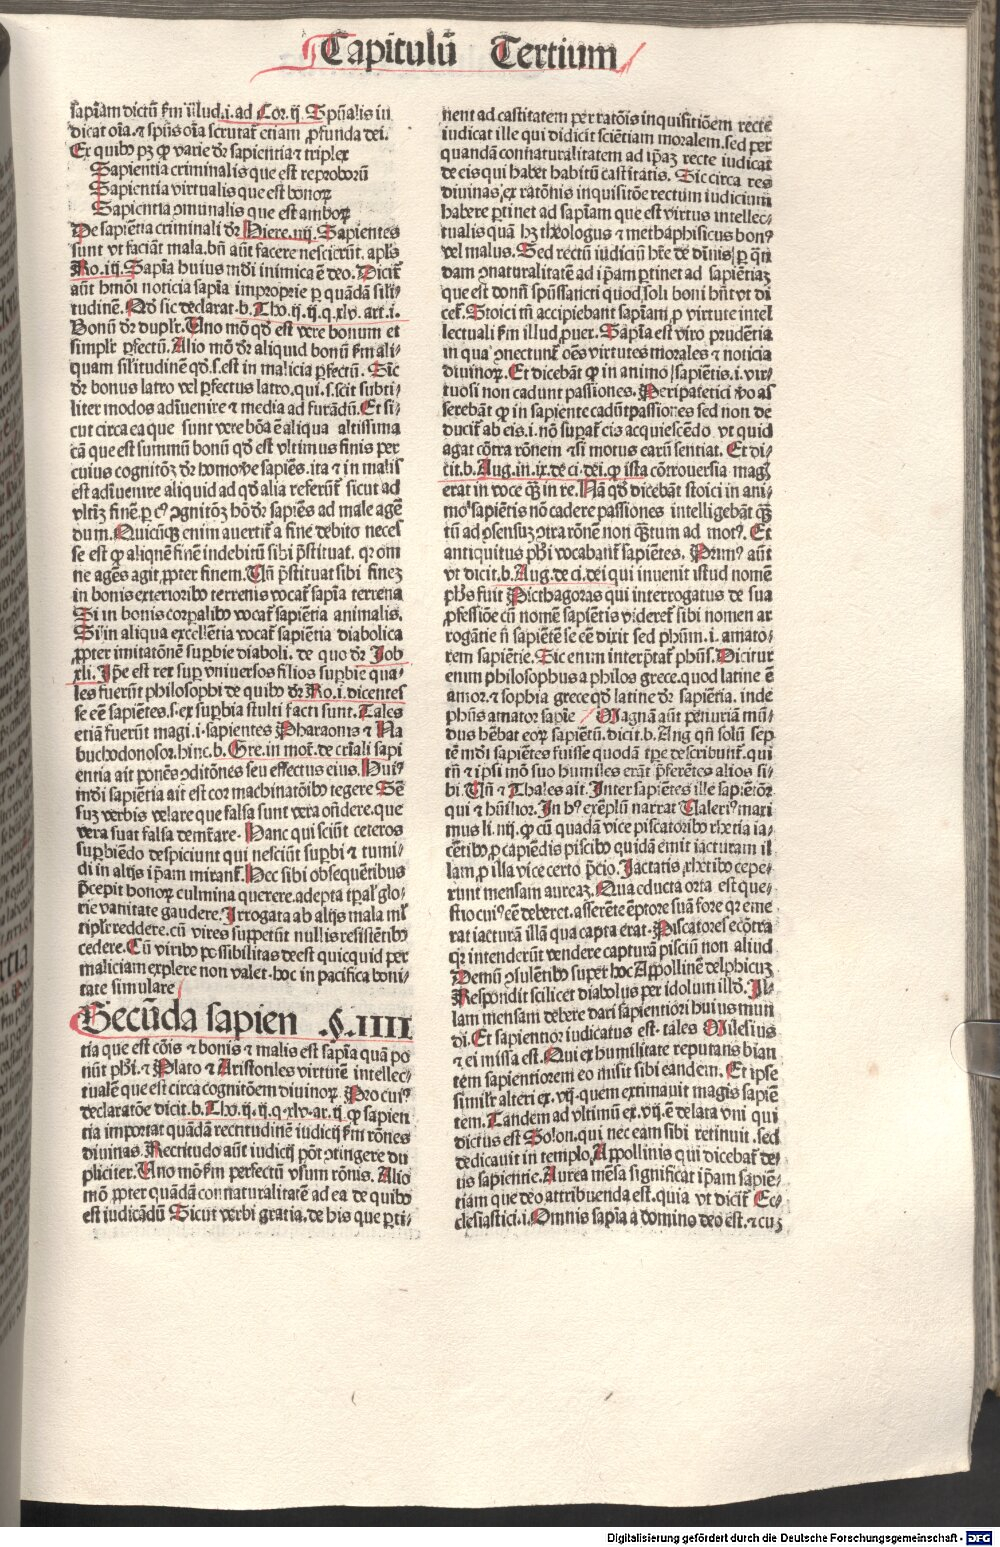 Capitulū Tertium
sapiam dictū ẜm illud.i.ad Cor.ij. Spūalis iu
dicat oīa.⁊ spūs oīa scrutat̄ etiam ꝓfunda dei.
Ex quibꝰ pꝫ ꝙ varie dr̄ sapientia ⁊ triplex
Sapientia criminalis que est reproborū
Sapientia virtualis que est bonoꝝ
Sapientia ꝯmunalis que est amboꝝ
De sapiētia criminali dr̄ Hiere.iiij. Sapientes
sunt vt faciāt mala.bn̄ aūt facere nescierūt. apls̄
Ro.iij. Sapīa huius mōi inimica ē deo. Dicit̄
aūt hmōi noticia sapīa improprie ꝑ quādā sili⸗
tudinē. Qd̄ sic declarat.b. Tho.ij.ij.q.xlv. art.i.
Bonū dr̄ duplr̄. Uno mō qd̄ est vere bonum et
simplr̄ ꝑfectū. Alio mō dr̄ aliquid bonū ẜm ali⸗
quam silitudinē qd̄.s.est in malicia ꝑfectū. Sic
dr̄ bonus latro vel ꝑfectus latro.qui.s.scit subti⸗
liter modos adīuenire ⁊ media ad furādū. Et si⸗
cut circa ea que sunt vere bōa ē aliqua altissima
cā que est summū bonū qd̄ est vltimus finis per
cuius cognitōꝫ dr̄ homo ve sapiēs. ita ⁊ in malis
est adīuenire aliquid ad qd̄ alia referūt̄ sicut ad
vltīꝫ finē ꝑ cꝰ ꝯgnitōꝫ hō dr̄ sapiēs ad male agē
dum. Quicūqꝫ enim auertit̄ a fine debito neces
se est ꝙ aliquē finē indebitū sibi p̄stituat. qꝛ om
ne agēs agit ꝓpter finem. Un̄ p̄stituat sibi fineꝫ
in bonis exterioribꝰ terrenis vocat̄ sapīa terrena
Si in bonis corꝑalibꝰ vocat̄ sapiētia animalis.
Si in aliqua excellētia vocat̄ sapiētia diabolica
ꝓpter imitatōnē suꝑbie diaboli. de quo dr̄ Job
xli. Ip̄e est rex suꝑ vniuersos filios suꝑbie qua⸗
les fuerūt philosophi de quibꝰ dr̄ Ro.i. dicentes
se eē sapiētes.s.ex suꝑbia stulti facti sunt. Tales
etiā fuerūt magi.i.sapientes Pharaonis ⁊ Na
buchodonosor.hinc.b. Gre.in mor̄. de cri̅ali sapi
entia ait ponēs ꝯditōnes seu effectus eius. Huiꝰ
mōi sapiētia ait est cor machinatōibꝰ tegere Sē
suꝫ verbis velare que falsa sunt vera on̄dere.que
vera suat falsa demr̄are. Hanc qui sciūt ceteros
suꝑbiēdo despiciunt qui nesciūt suꝑbi ⁊ tumi⸗
di in alijs ip̄am mirant̄. Hec sibi obsequētibus
p̄cepit bonoꝝ culmina querere.adepta tꝑal̄ glo⸗
rie vanitate gaudere. Irrogata ab alijs mala ml̄
tiplr̄ reddere.cū vires suppetūt nullis resistētibꝰ
cedere. Cū viribꝰ possibilitas deest quicquid per
maliciam explere non valet.hoc in pacifica boni⸗
tate simulare
Secūda sapien .§.IIII
tia que est cōis ⁊ bonis ⁊ malis est sapīa quā po
nūt phi̅.⁊ Plato ⁊ Aristotiles virtutē intellec⸗
tualē que est circa cognitōem diuinoꝝ. Pro cuiꝰ
declaratōe dicit.b. Tho.ij.ij.q.xlv.ar.ij ꝙ sapien
tia importat quādā rectitudinē iudicij ẜm rōnes
diuinas. Rectitudo aūt iudicij pōt ꝯtingere du
pliciter. Uno mō ẜm perfectū vsum rōnis. Alio
mō ꝓpter quādā connaturalitatē ad ea de quibꝰ
est iudicādū Sicut verbi gratia.de his que ꝑti⸗
nent ad castitatem per ratōis inquisitiōem recte
iudicat ille qui didicit sciētiam moralem.sed per
quandā connaturalitatem ad ip̄aꝫ recte iudicat
de eis qui habet habitū castitatis. Sic circa res
diuinas ex ratōnis inquisitōe rectum iudicium
habere ꝑtinet ad sapīam que est virtus intellec⸗
tualis quā hꝫ theologus ⁊ methaphisicus bonꝰ
vel malus. Sed rectū iudiciū hr̄e de diuīs ꝑ qn̄
dam ꝯnaturalitatē ad ip̄am ꝑtinet ad sapiētiaꝫ
que est donū spūssancti quod soli boni hn̄t vt di
cet̄. Stoici m̄ accipiebant sapīam ꝑ virtute intel
lectuali ẜm illud ꝓuer. Sapīa est viro prudētia
in qua ꝯnectunt̄ oēs virtutes morales ⁊ noticia
diuinoꝝ. Et dicebāt ꝙ in animo sapiētis.i.vir⸗
tuosi non cadunt passiones. Peripatetici vo as
serebāt ꝙ in sapiente cadūt passiones sed non de
ducit̄ ab eis.i.nō suꝑat̄ eis acquiescēdo vt quid
agat cōtra rōnem ⁊si motus earū sentiat. Et di⸗
cit.b. Aug.in.ix.de ci.dei.ꝙ ista cōtrouersia magꝭ
erat in voce qꝫ in re. Nā qd̄ dicebāt stoici in ani⸗
mo sapiētis nō cadere passiones intelligebāt qꝫ
tū ad ꝯsensuꝫ ꝯtra rōnē non qꝫtum ad motꝰ. Et
antiquitus phi̅ vocabant̄ sapiētes. Primꝰ aūt
vt dicit.b. Aug.de ci.dei qui inuenit istud nomē
phūs fuit Picthagoras qui interrogatus de sua
ꝓfessiōe cū nomē sapiētis videret̄ sibi nomen ar
rogātie n̄ sapiētē se eē dixit sed phūm.i.amato⸗
rem sapiētie. Sic enim interp̄tat̄ phūs. Dicitur
enim philosophus a philos grece.quod latine ē
amor.⁊ sophia grece qd̄ latine dr̄ sapiētia. inde
phūs amator sapīe Magnā aūt penuriā mū⸗
dus hēbat eoꝝ sapiētū.dicit.b. Aug qn̄ solū sep
tē mōi sapiētes fuisse quodā tꝑe describunt̄.qui
tn̄ ⁊ ipsi mō suo humiles erāt p̄ferētes alios si⸗
bi. Un̄ ⁊ Thales ait. Inter sapiētes ille sapiētior
qui ⁊ hūilior. In hꝰ exēplū narrat Valeriꝰ maxi
mus li.iiij.ꝙ cū quadā vice piscatoribꝰ rhetia ia⸗
cētibꝰ ꝓ capiēdis piscibꝰ quidā emit iacturam il
lam ꝓ illa vice certo p̄cio. Jactatis rhetibꝰ cepe⸗
runt mensam aureaꝫ. Qua educta orta est que⸗
stio cuiꝰ eē deberet.asserēte ēptore suā fore qꝛ eme
rat iacturā illā qua capta erat. Piscatores ecōtra
qꝛ intenderūt vendere capturā pisciū non aliud
Demū ꝯsulētibꝰ super hoc Appollinē delphicuꝫ
Respondit scilicet diabolus per idolum illd̄. Il⸗
lam mensam debere dari sapientiori huius mun
di. Et sapientior iudicatus est. tales Milesius
⁊ ei missa est. Qui ex humilitate reputans bian
tem sapientiorem eo misit sibi eandem. Et ipse
simil̄r alteri ex.vij.quem extimauit magis sapiē
tem. Tandem ad vltimū ex.vij.ē delata vni qui
dictus est Solon.qui nec eam sibi retinuit.sed
dedicauit in templo Appollinis qui dicebat̄ de⸗
us sapientie. Aurea mēsa significat ip̄am sapiē⸗
tiam que deo attribuenda est.quia vt dicit̄ Ec⸗
clesiastici.i. Omnis sapīa a domino deo est.⁊ cuꝫ
Digitalisierung gefördert durch die Deutsche Forschungsgemeinschaft - DFG